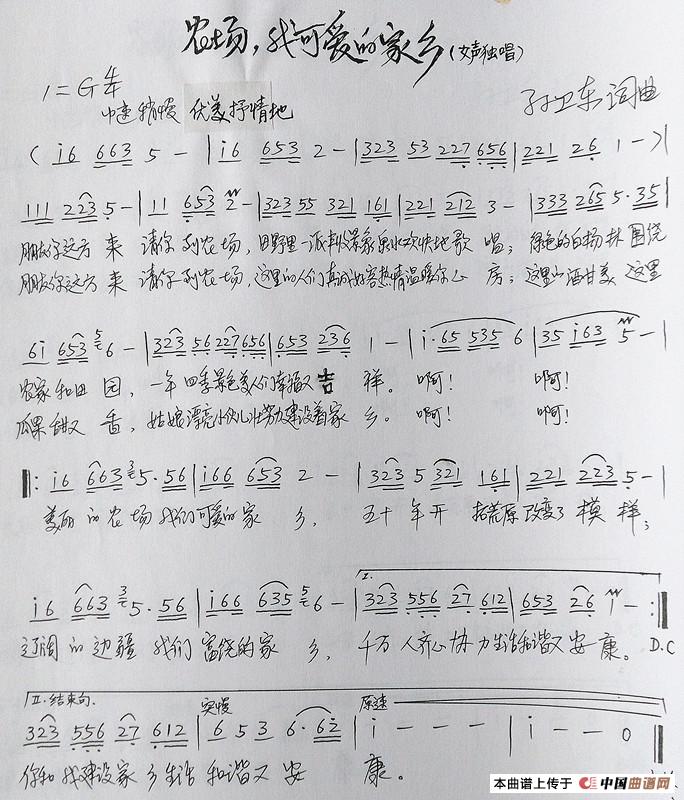 农场，我可爱的家乡(女声独唱)
1=G 4/4
中速稍慢 优美抒情地
孙卫东词曲
( i6 663 5 - | i6 653 2 - | 323 53 227 656 | 221 26 1 - ) |
111 223 5 - | 11 653 2 - | 323 55 321 161 | 221 212 3 - | 333 265 5·35 |
朋友你远方 来 请你到农场，田野里一派丰收景象泉水欢快地歌 唱；绿色的白杨林 围绕
朋友你远方 来 请你到农场，这里的人们真诚好客热情温暖你心 房；这里的酒甘美 这里
6i 653 5 6 - | 323 56 227 656 | 653 236 1 - | i·65 535 6 | 35 i63 5 - |
农家和田 园，一年四季景色美人们幸福又吉 祥。 啊！ 啊！
瓜果甜又 香，姑娘漂亮小伙儿壮努力建设着家 乡。 啊！ 啊！
‖: i6 663 3 5·56 | i66 653 2 - | 323 5 321 161 | 221 223 5 - |
美丽 的农 场我们可爱的家 乡， 五十 年开 拓荒原改变了 模 样；
i6 663 3 5·56 | i66 635 5 6 - | I. 323 556 27 612 | 653 26 i - :‖
辽阔 的边疆 我们 富饶的家 乡， 千万 人齐心协力生活和谐又 安 康。 D.C
II.结束句. 突慢 原速
323 556 27 612 | 6 5 3 6·62 | i - - - | i - - 0 ‖
你和我建设家 乡生活 和谐又 安 康。
本曲谱上传于 中国曲谱网